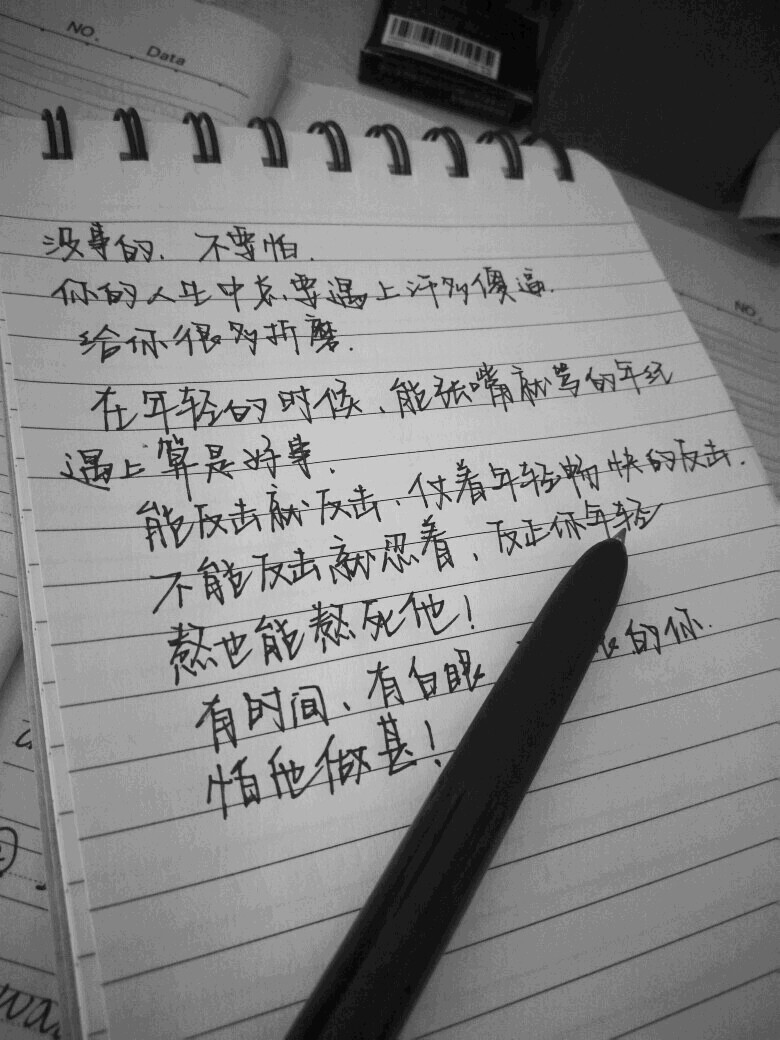 NO.
Data
没事的、不要怕.
你的人生中总要遇上许多傻逼.
给你很多折磨.
在年轻的时候、能张嘴就骂的年纪
遇上算是好事.
能反击就反击、仗着年轻畅快的反击.
不能反击就忍着、反正你年轻
熬也能熬死他！
有时间、有白眼 的你.
怕他做甚！
NO.
wa